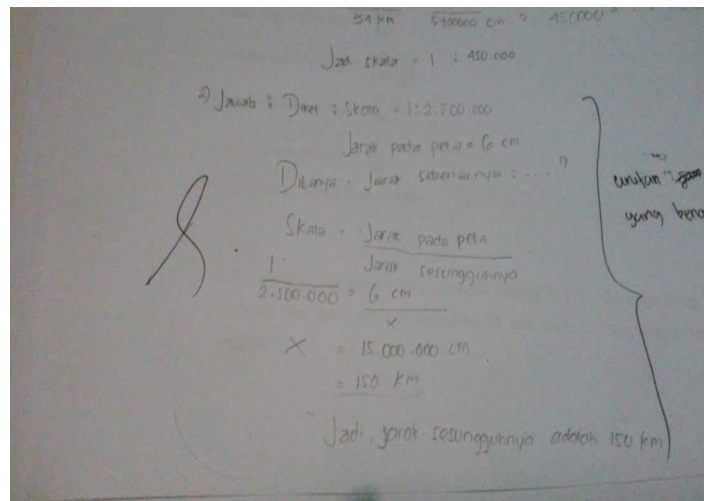 54 km 5400000 cm = 450000
Jadi skala = 1 : 450.000
2) Jawab : Diket : Skala = 1 : 2.500.000
Jarak pada peta = 6 cm
Ditanya = Jarak sebenarnya : .... ?
urutan
yang bena
Skala = Jarak pada peta
Jarak sesungguhnya
1
2.500.000 = 6 cm
x
X = 15.000.000 cm
= 150 km
Jadi, jarak sesungguhnya adalah 150 km